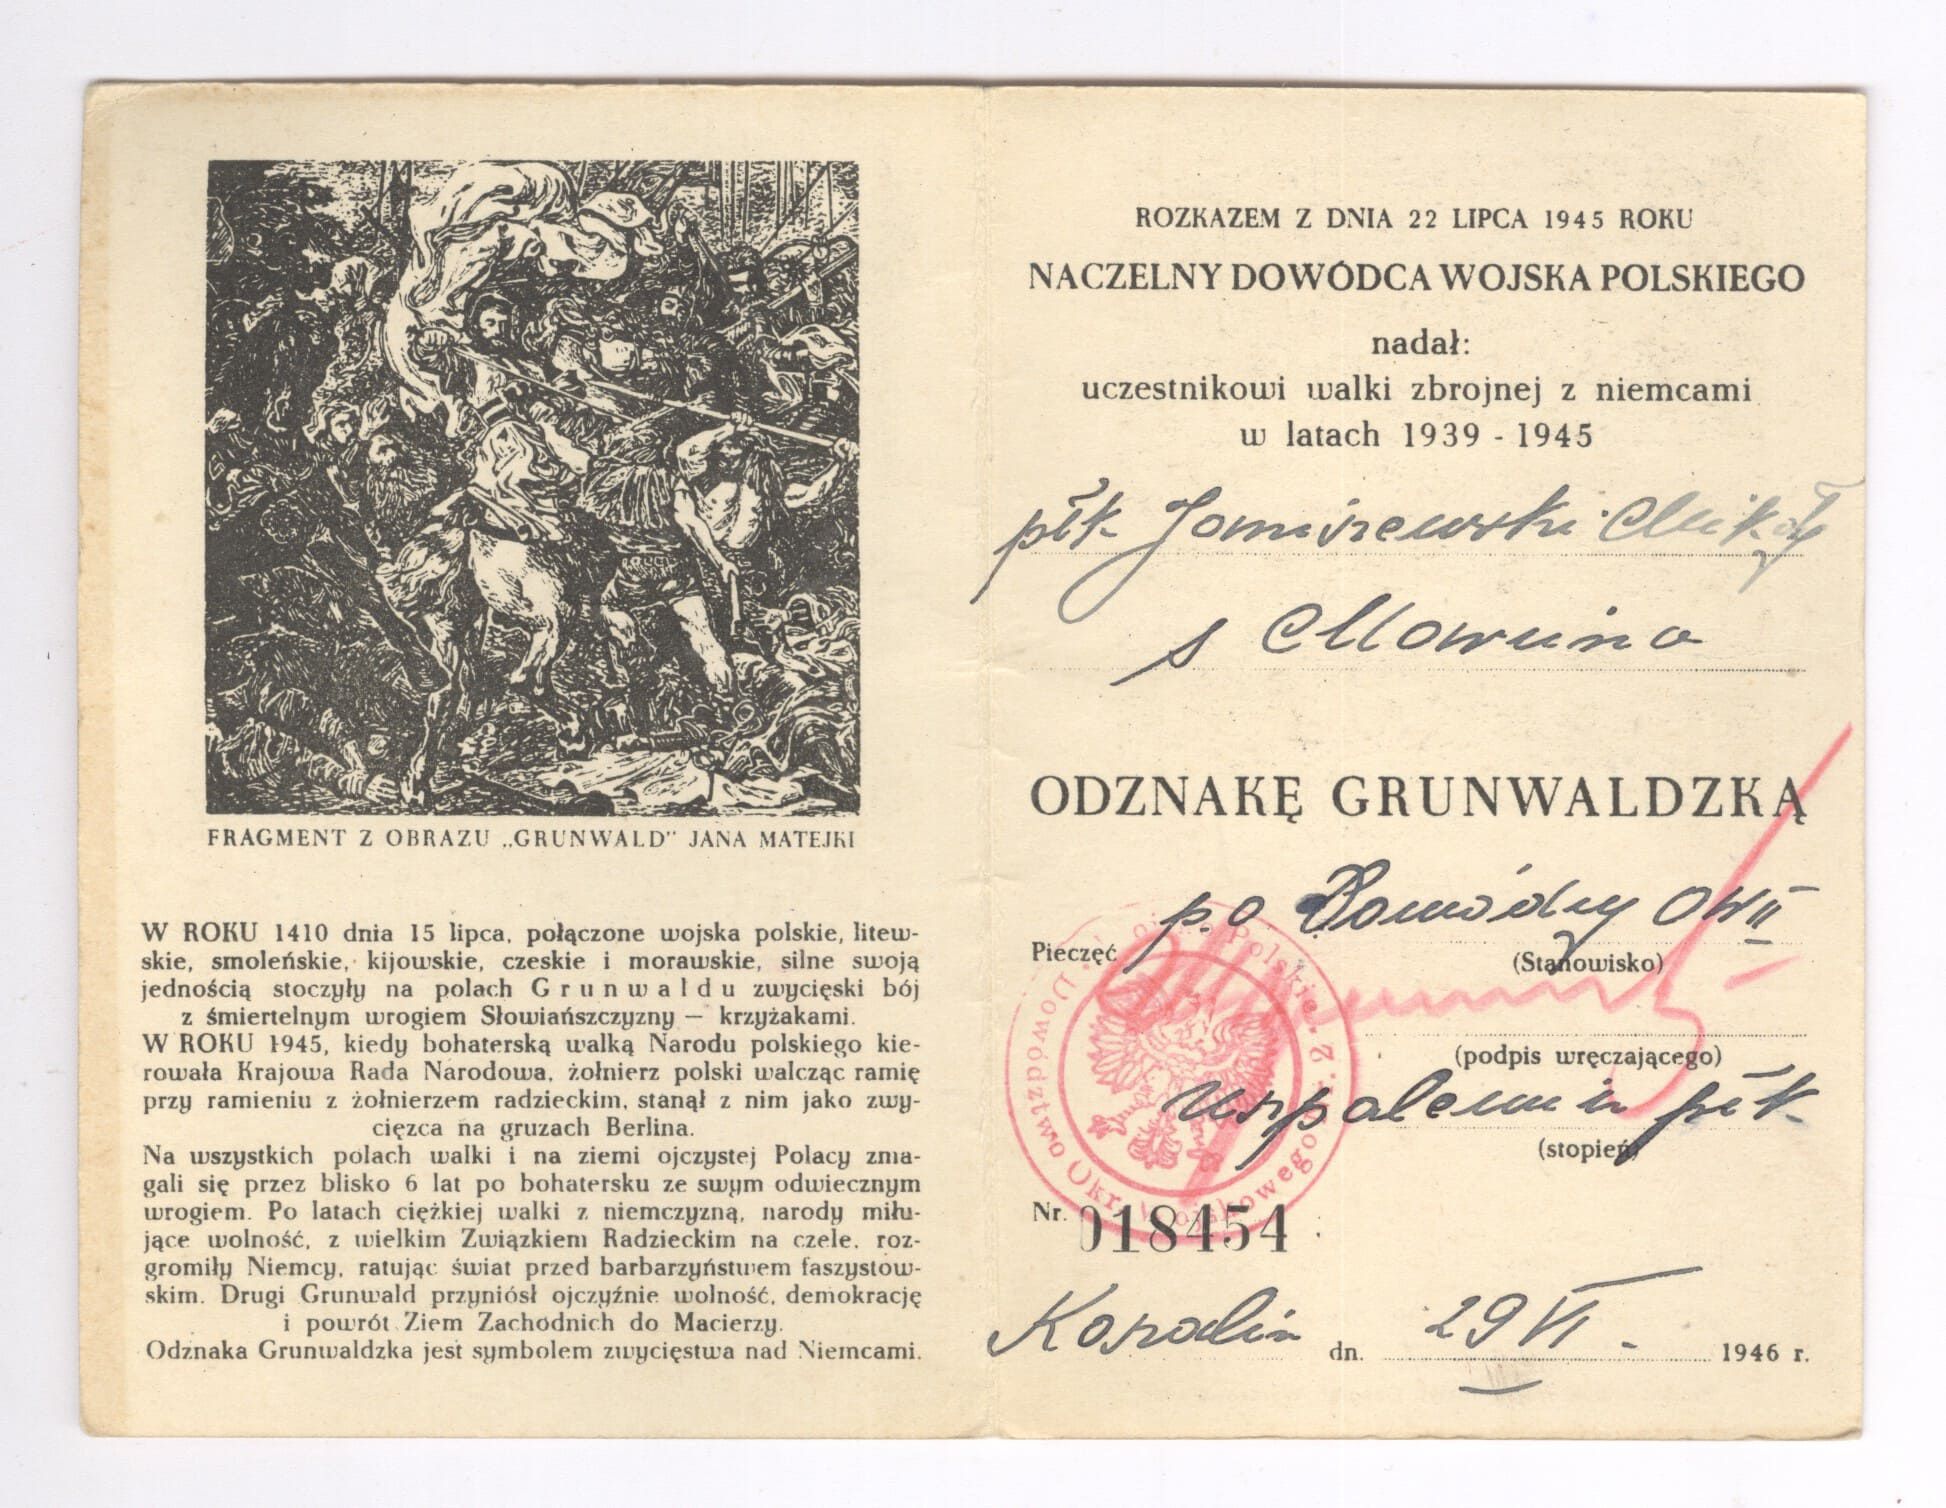 FRAGMENT Z OBRAZU „GRUNWALD” JANA MATEJKI
W ROKU 1410 dnia 15 lipca, połączone wojska polskie, litew-
skie, smoleńskie, kijowskie, czeskie i morawskie, silne swoją
jednością stoczyły na polach Grunwaldu zwycięski bój
z śmiertelnym wrogiem Słowiańszczyzny — krzyżakami.
W ROKU 1945, kiedy bohaterską walką Narodu polskiego kie-
rowała Krajowa Rada Narodowa, żołnierz polski walcząc ramię
przy ramieniu z żołnierzem radzieckim, stanął z nim jako zwy-
cięzca na gruzach Berlina.
Na wszystkich polach walki i na ziemi ojczystej Polacy zma-
gali się przez blisko 6 lat po bohatersku ze swym odwiecznym
wrogiem. Po latach ciężkiej walki z niemczyzną, narody miłu-
jące wolność, z wielkim Związkiem Radzieckim na czele, roz-
gromiły Niemcy, ratując świat przed barbarzyństwem faszystow-
skim. Drugi Grunwald przyniósł ojczyźnie wolność, demokrację
i powrót Ziem Zachodnich do Macierzy.
Odznaka Grunwaldzka jest symbolem zwycięstwa nad Niemcami.
ROZKAZEM Z DNIA 22 LIPCA 1945 ROKU
NACZELNY DOWÓDCA WOJSKA POLSKIEGO
nadał:
uczestnikowi walki zbrojnej z niemcami
w latach 1939 - 1945
płk Mikołaj
s
ODZNAKĘ GRUNWALDZKĄ
p.o Dowódcy OW II
Pieczęć
(Stanowisko)
(podpis wręczającego)
płk
(stopień)
Dowództwo Okr. Wojskowego Nr. 2
Nr. 018454
Koszalin dn. 29 VI 1946 r.